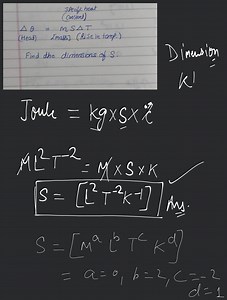 Specific heat
(solved)
Δθ = m S Δ T
(Heat) (mass) (Rise in temp.)
Find the dimensions of S.
Dimension
K¹
Joule = kg x S x
ML²T⁻² = M x S x K
S = [L²T⁻²K⁻¹]
Ans.
S = [Mᵃ Lᵇ Tᶜ Kᵈ]
= a=0, b=2, c=-2
d=1